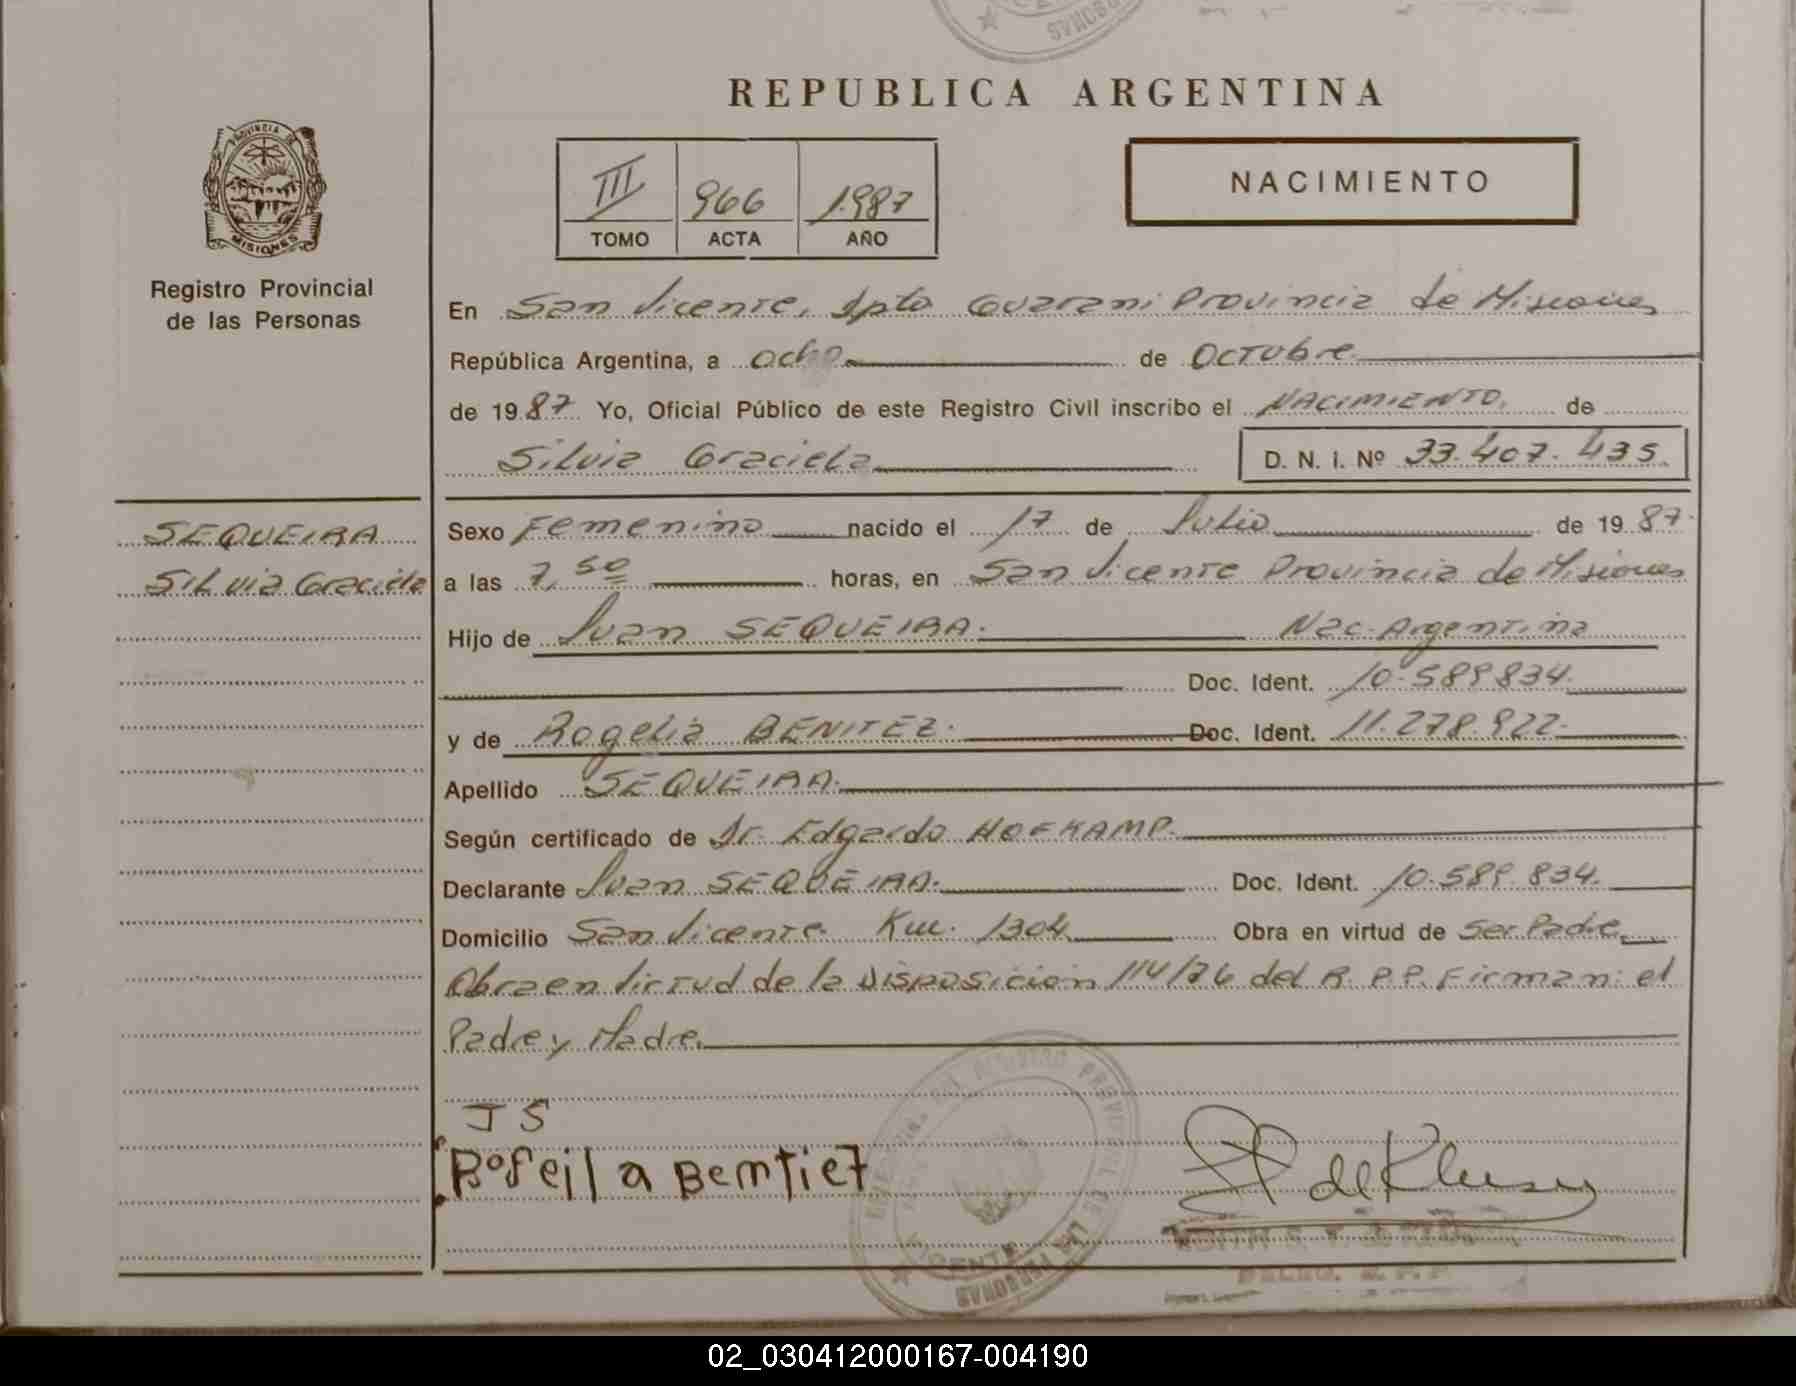 PERSONAS
REPUBLICA ARGENTINA
PROVINCIA DE
MISIONES
Registro Provincial
de las Personas
III 966 1.987
TOMO ACTA AÑO
NACIMIENTO
En San Vicente, Dpto Guarani Provincia de Misiones
República Argentina, a ocho de Octubre
de 1987 Yo, Oficial Público de este Registro Civil inscribo el NACIMIENTO. de
Silvia Graciela D. N. I. Nº 33.407.435.
SEQUEIRA
Silvia Graciela
Sexo Femenino nacido el 17 de Julio de 1987.
a las 7,50 horas, en San Vicente Provincia de Misiones
Hijo de Juan SEQUEIRA. Nac. Argentina
Doc. Ident. 10.589.834.
y de Rogelia BENITEZ. Doc. Ident. 11.278.922.
Apellido SEQUEIRA.
Según certificado de Dr. Edgardo HOFKAMP.
Declarante Juan SEQUEIRA. Doc. Ident. 10.589.834.
Domicilio San Vicente Km. 1304 Obra en virtud de ser Padre,
Obra en Virtud de la Disposición 114/76 del R.P.P. Firman: el
Padre y Madre.
J S
Roseila Bemtiez
PERSONAS
02_030412000167-004190